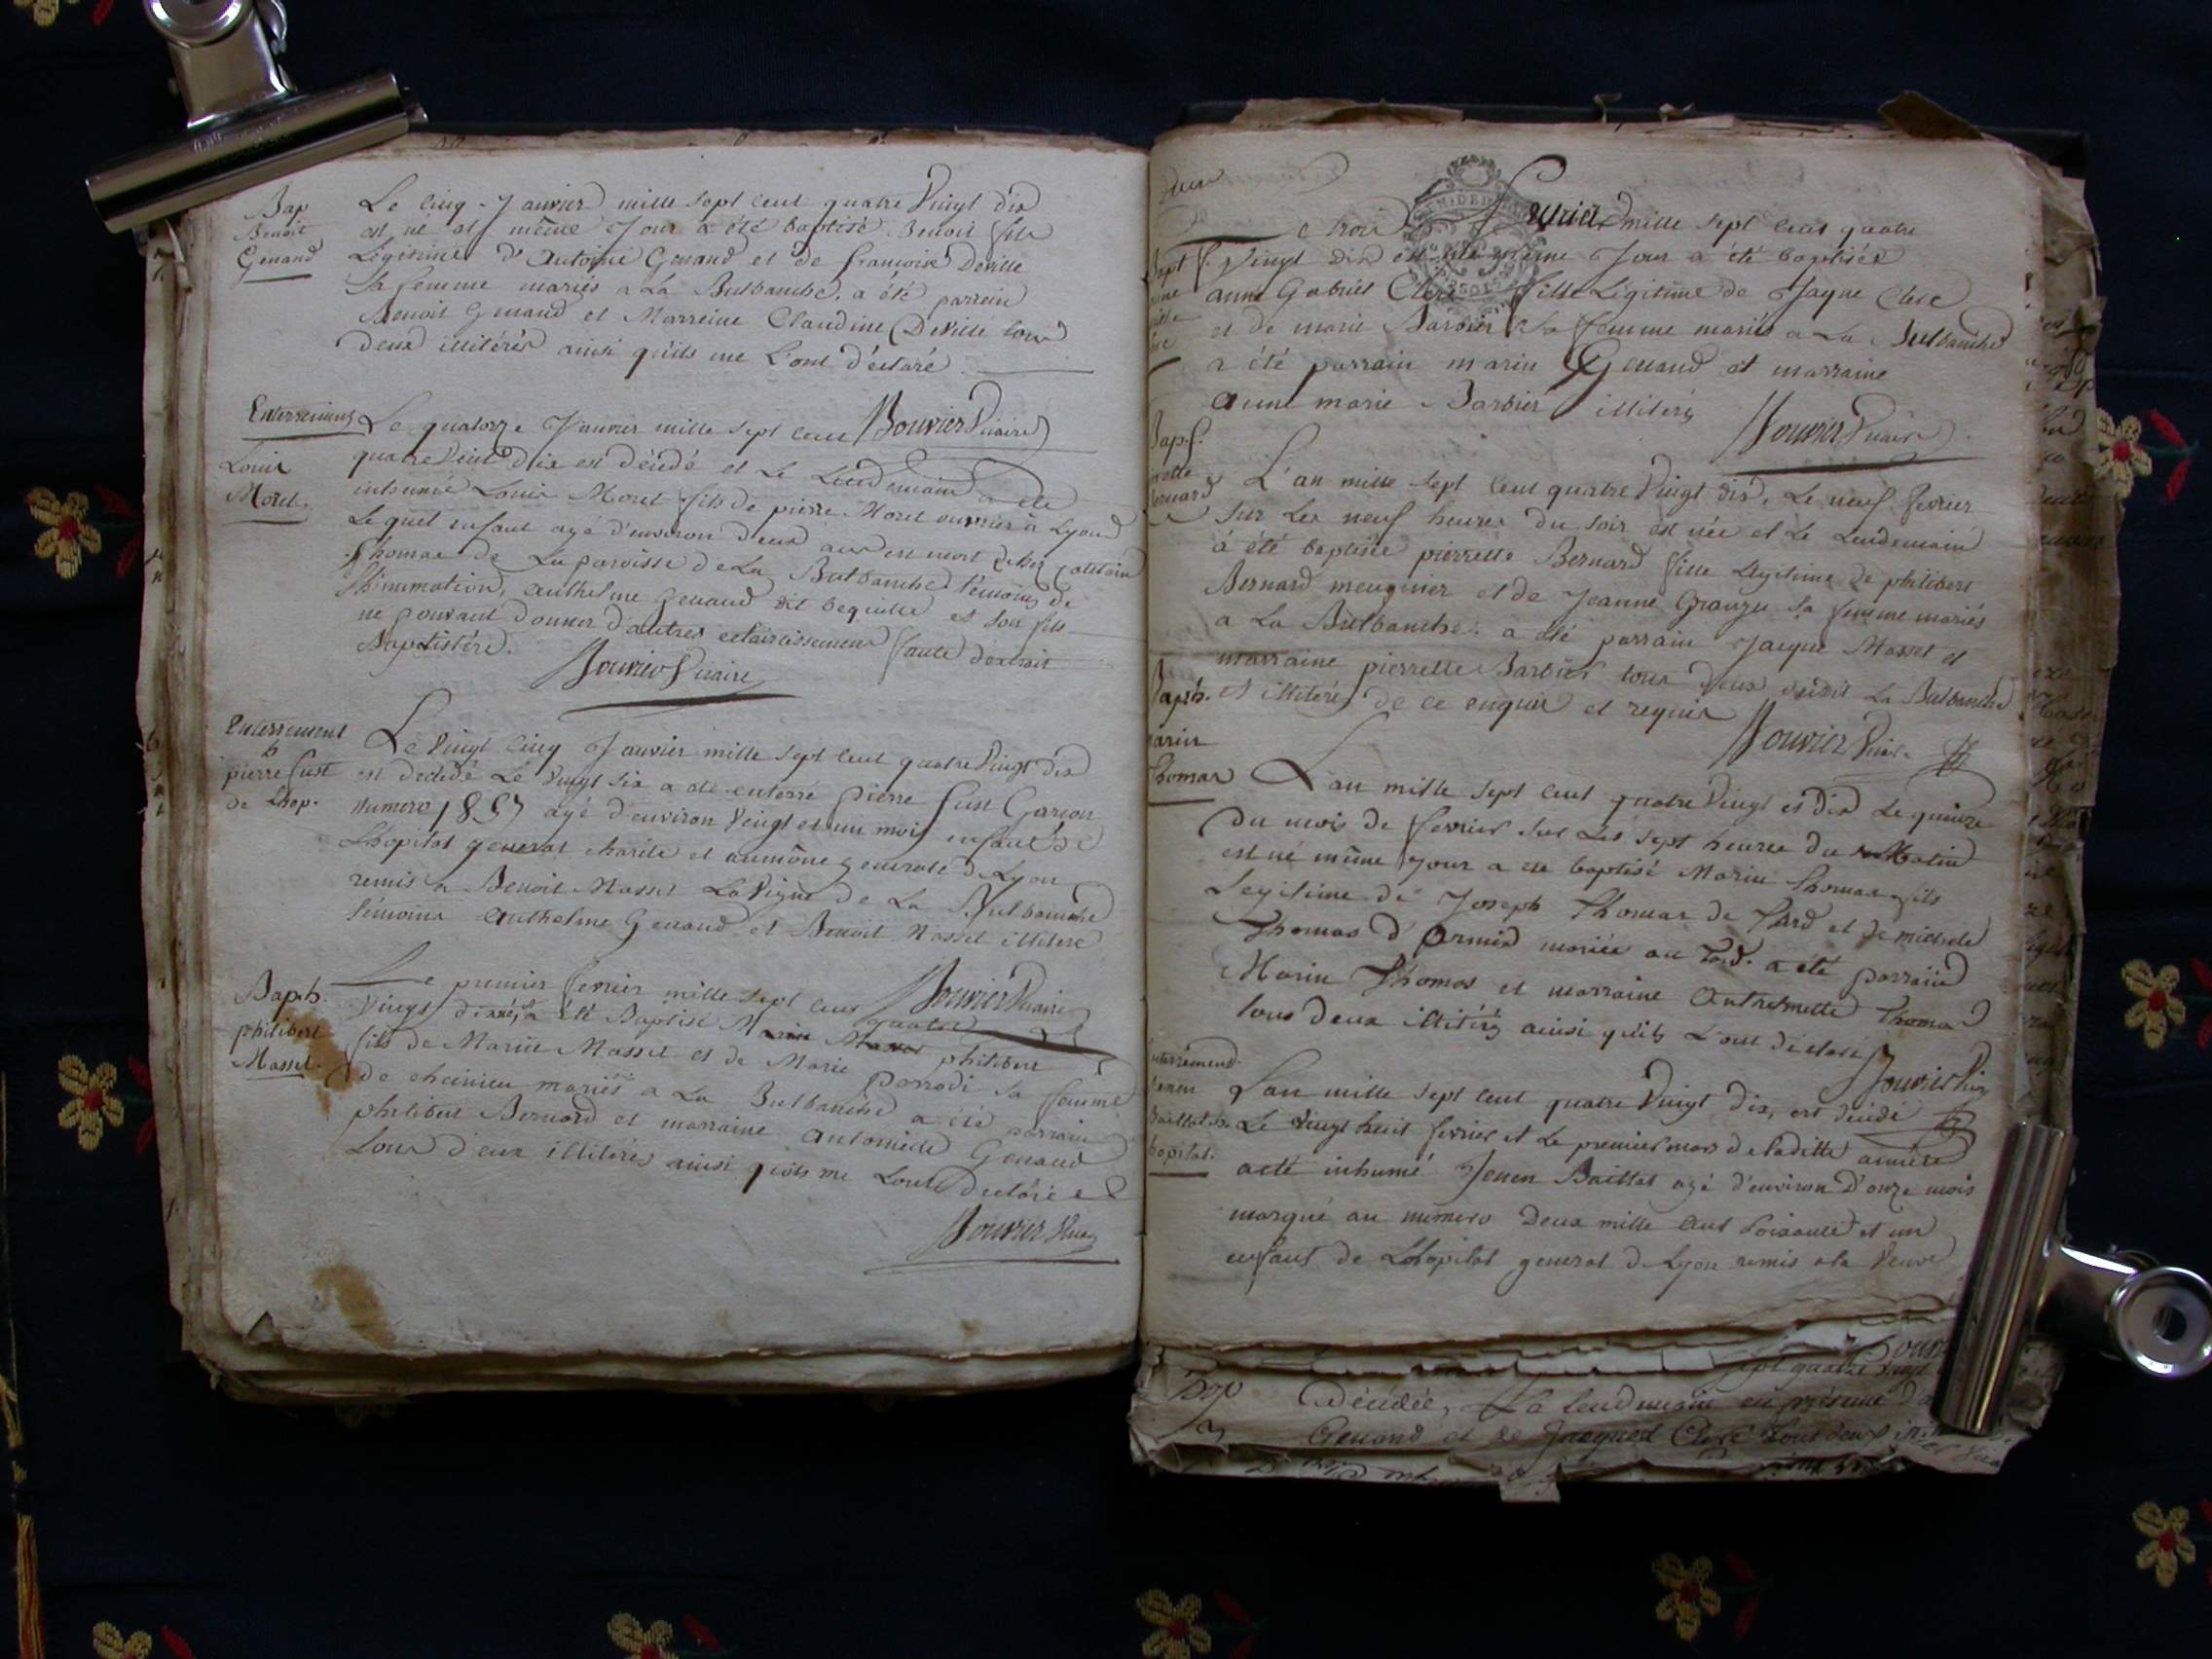 Bap
Benoit
Genand
Le cinq Janvier mille sept cent quatre vingt dix
est né et même Jour a été baptisé Benoit fils
Légitime d'Antoine Genand et de françoise Deville
sa femme mariés a La Bulbanche, a été parrein
Benoit Genand et Marreine Claudine Deville tous
deux illitérés ainsi qu'ils me L'ont déclaré
Bouvier vicaire
Enterrement
Louis
Moret.
Le quatorze Janvier mille sept cent
quatre vint dix est décédé et Le Lendemain a ete
inhumé Louis Moret fils de pierre Moret ouvrier a Lyon
Lequel enfant agé d'environ deux ans est mort chez
Thomas de La paroisse de La Bulbanche temoins de
L'inhumation, anthelme Genaud dit bequille et son fils
ne pouvant donner d'autres eclaircissement faute d'extrait
Baptistére.
Bouvier vicaire
Enterrement
pierre fust
de Lhop.
Le vingt cinq Janvier mille sept cent quatre vingt dix
est decédé Le vingt six a été enterré pierre fust Garçon
numero 1857 agé d'environ vingt et un mois enfant de
Lhopital general charité et aumône generale de Lyon
remis a Benoit Masset La vigne de La Bulbanche
témoins anthelme Genaud et Benoit Masset illiteré
Bouvier vicaire
Bapt.
philibert
Masset.
Le premier fevrier mille sept cent quatre
vingt dix né, a été Baptisé philibert
fils de Marin Masset et de Marie Perrodi sa femme
de cheinieu mariés a La Bulbanche a été parrain
philibert Bernard et marraine antoinette Genaud
tous deux illitérés ainsi qu'ils me Lont declaré
Bouvier vicaire
Le trois Fevrier mille sept cent quatre
vingt dix est née même Jour a été baptisée
anne Gabriel Clerc fille Légitime de Jaque Clerc
et de marie Barbier sa femme mariés a La Bulbanche
a été parrain marin Genaud et marraine
anne marie Barbier illiterés
Bouvier vicaire
Bapt.
Bernard
L'an mille sept cent quatre vingt dix, Le neuf fevrier
sur Les neuf heures du soir est née et Le Lendemain
à été baptisée pierrette Bernard fille Légitime de philibert
Bernard meugnier et de Jeanne Granger sa femme mariés
a La Bulbanche. a été parrain Jacque Masset et
marraine pierrette Barbier tous deux dudit La Bulbanche
et illiterés de ce enquis et requis
Bouvier vicaire
Bapt.
marin
Thomas
L'an mille sept cent quatre vingt et dix Le quinze
du mois de fevrier sur Les sept heures du Matin
est né même Jour a été baptisé Marin Thomas fils
Legitime de Joseph Thomas de Tard et de michele
Thomas d'Ormix mariés au Tard. a été parrain
Marin Thomas et marraine Anthelmette Thomas
tous deux illitérés ainsi qu'ils L'ont déclaré
Bouvier vicaire
enterrement.
Jenen
Baillat de
Lhopital.
L'an mille sept cent quatre vingt dix, est décédé
Le vingt huit fevrier et Le premier mars de Laditte année
a été inhumé Jenen Baillat agé d'environ D'onze mois
marqué au numero Deux mille Cent soixante et un
enfant de Lhopital general de Lyon remis a la veuve
sept quatre vingt
décédée, La lendemain en présence
Genand et de Jacques Clerc tous deux